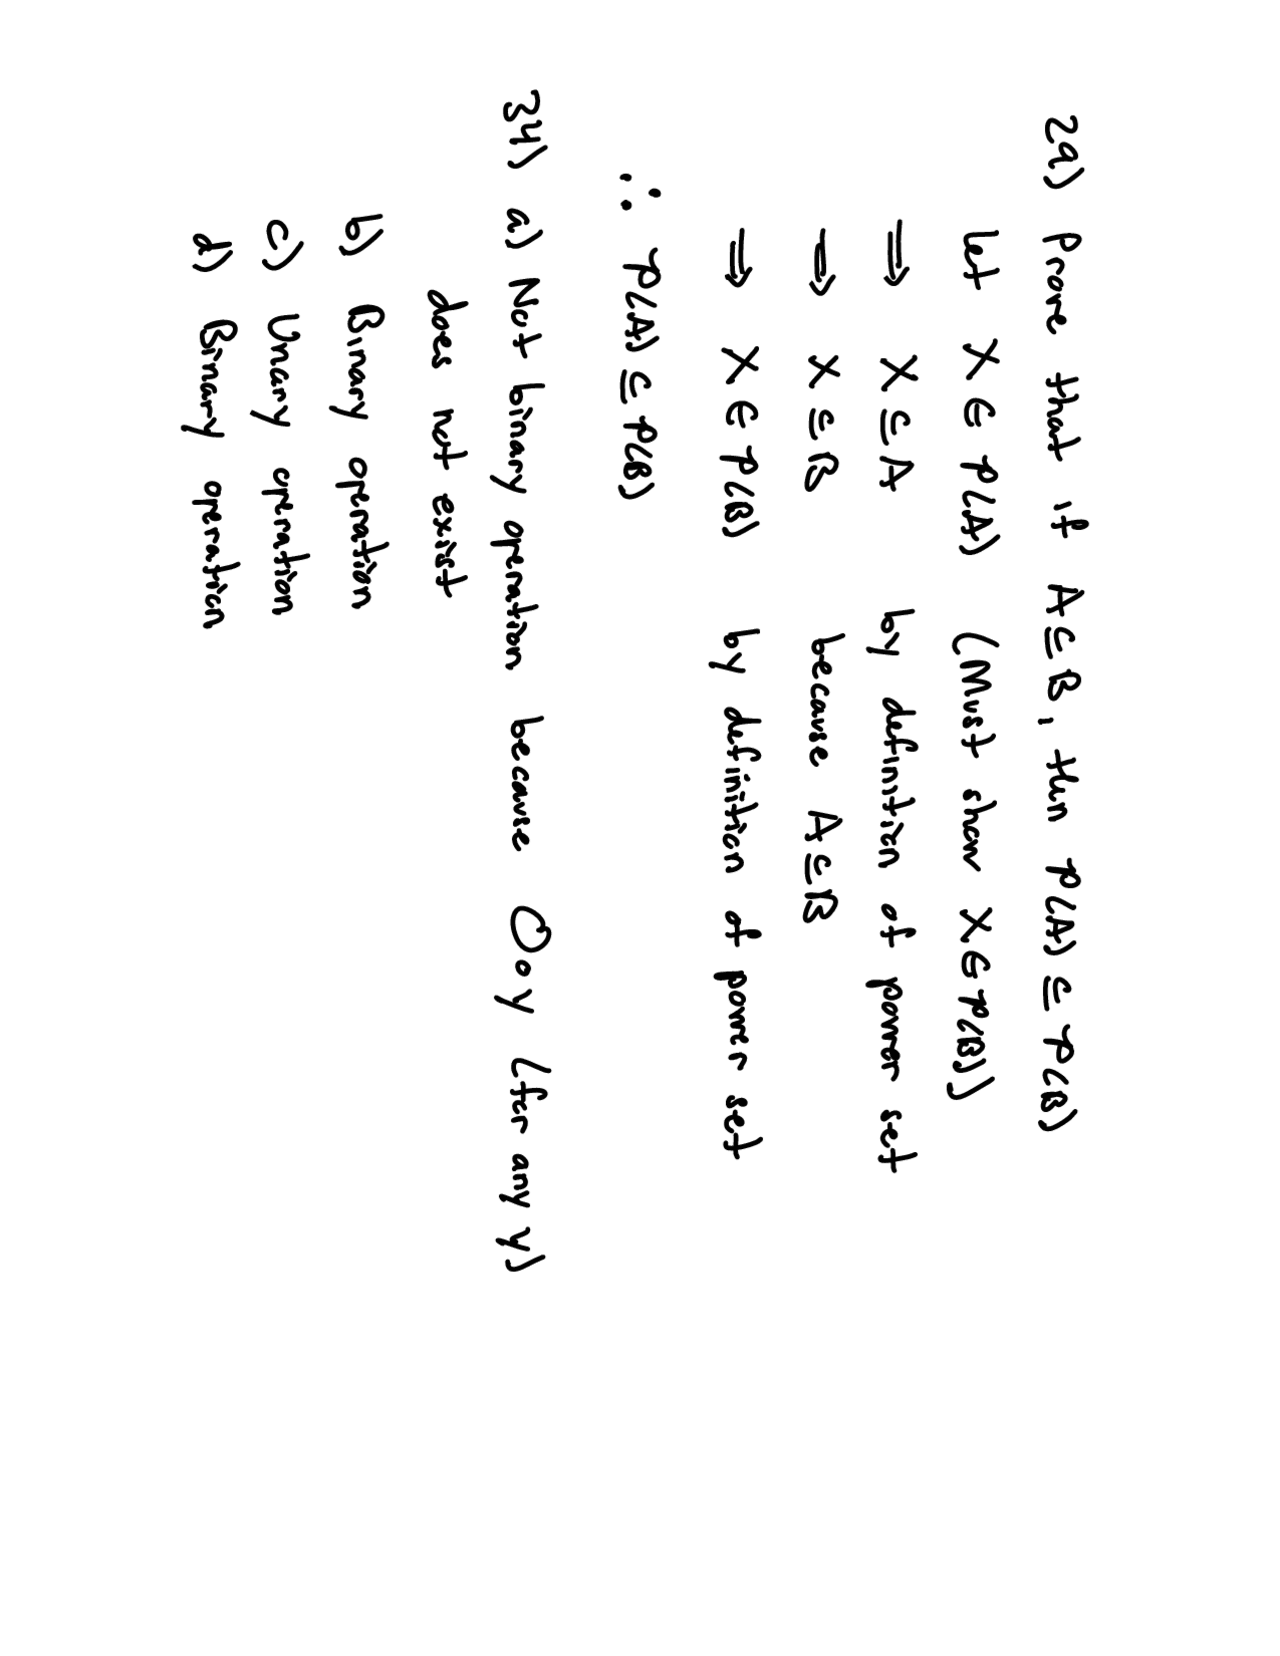 29) Prove that if A⊆B, then P(A) ⊆ P(B)
Let X ∈ P(A) (Must show X∈P(B))
⇒ X ⊆ A by definition of power set
⇒ X ⊆ B because A⊆B
⇒ X ∈ P(B) by definition of power set
∴ P(A) ⊆ P(B)
34) a) Not binary operation because 0∘y (for any y)
does not exist
b) Binary operation
c) Unary operation
d) Binary operation